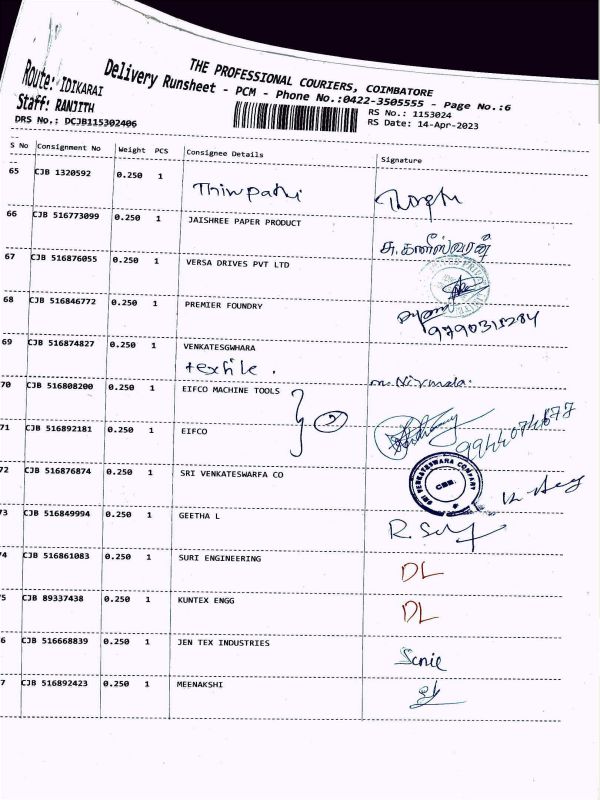 THE PROFESSIONAL COURIERS, COIMBATORE
Delivery Runsheet - PCM - Phone No.:0422-3505555 - Page No.:6
Route: IDIKARAI
Staff: RANJITH
RS No.: 1153024
DRS No.: DCJB115302406
RS Date: 14-Apr-2023
S No Consignment No Weight PCS Consignee Details Signature
65 CJB 1320592 0.250 1
Thirupathi
66 CJB 516773099 0.250 1 JAISHREE PAPER PRODUCT
சு.கணீஸ்வரன்
67 CJB 516876055 0.250 1 VERSA DRIVES PVT LTD
68 CJB 516846772 0.250 1 PREMIER FOUNDRY
9790315284
69 CJB 516874827 0.250 1 VENKATESGWHARA
textile.
m.Nirmala.
70 CJB 516808200 0.250 1 EIFCO MACHINE TOOLS
2
9944074677
71 CJB 516892181 0.250 1 EIFCO
72 CJB 516876874 0.250 1 SRI VENKATESWARFA CO
SRI VENKATESWARA COMPANY
CBE.
73 CJB 516849994 0.250 1 GEETHA L
74 CJB 516861083 0.250 1 SURI ENGINEERING
DL
75 CJB 89337438 0.250 1 KUNTEX ENGG
DL
6 CJB 516668839 0.250 1 JEN TEX INDUSTRIES
7 CJB 516892423 0.250 1 MEENAKSHI